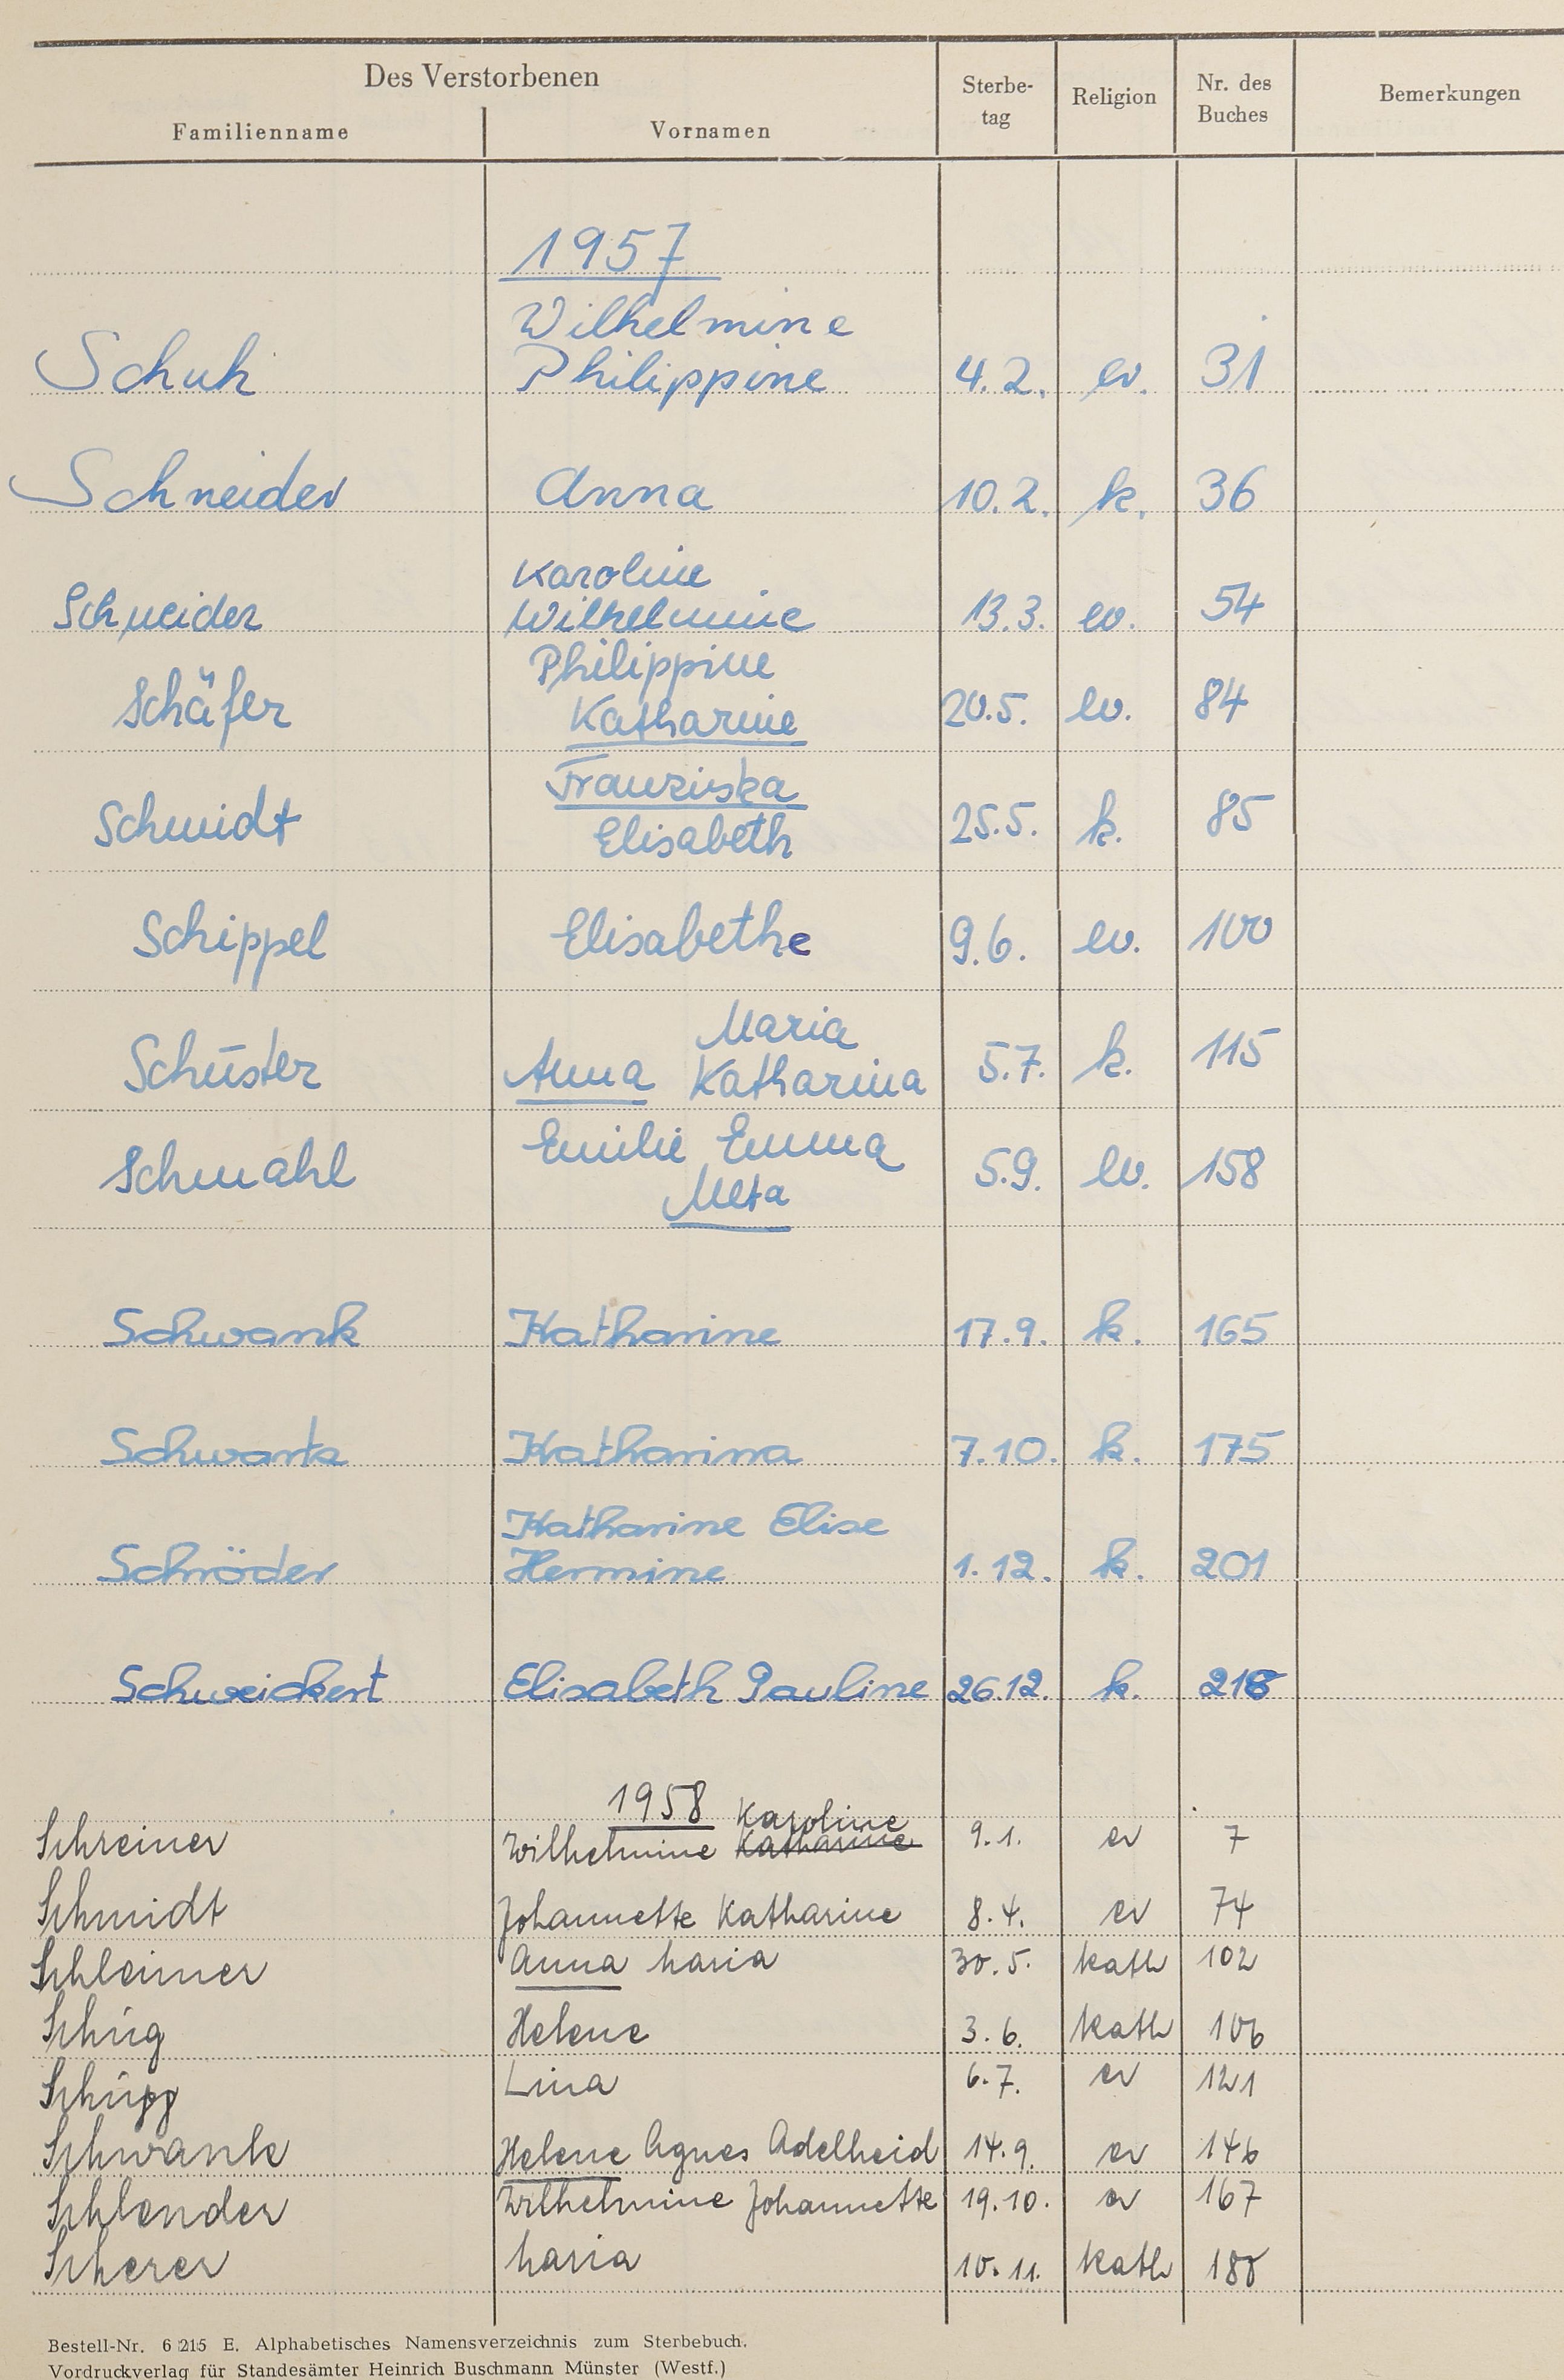 Des Verstorbenen
Sterbe-
tag
Religion
Nr. des
Buches
Bemerkungen
Familienname Vornamen
1957
Wilhelmine
Schuh Philippine 4.2. ev. 31
Schneider Anna 10.2. k. 36
Karoline
Schneider Wilhelmine 13.3. ev. 54
Philippine
Schäfer Katharine 20.5. ev. 84
Franziska
Schmidt Elisabeth 25.5. k. 85
Schippel Elisabethe 9.6. ev. 100
Maria
Schüster Anna Katharina 5.7. k. 115
Emilie Emma
Schmahl Meta 5.9. ev. 158
Schwank Katharine 17.9. k. 165
Schwartz Katharina 7.10. k. 175
Katharine Elise
Schröder Hermine 1.12. k. 201
Schweickert Elisabeth Pauline 26.12. k. 216
1958 Karoline
Schreiner Wilhelmine Katharine 9.1. ev 7
Schmidt Johannette Katharine 8.4. ev 74
Schleimer Anna Maria 30.5. kath 102
Schüg Helene 3.6. kath 106
Schüpp Lina 6.7. ev 121
Schwank Helene Agnes Adelheid 14.9. ev 146
Schlender Wilhelmine Johannette 19.10. ev 167
Scherer Maria 10.11. kath
Bestell-Nr. 6 215 E. Alphabetisches Namensverzeichnis zum Sterbebuch.
Vordruckverlag für Standesämter Heinrich Buschmann Münster (Westf.)